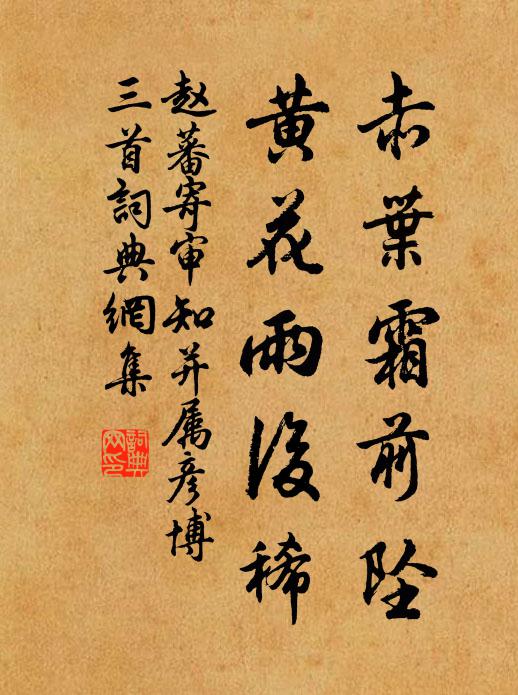 赤葉霜前坠
黄花雨後稀
赵蕃寄审知并属彦博
三首詞典網集
詞典
网印